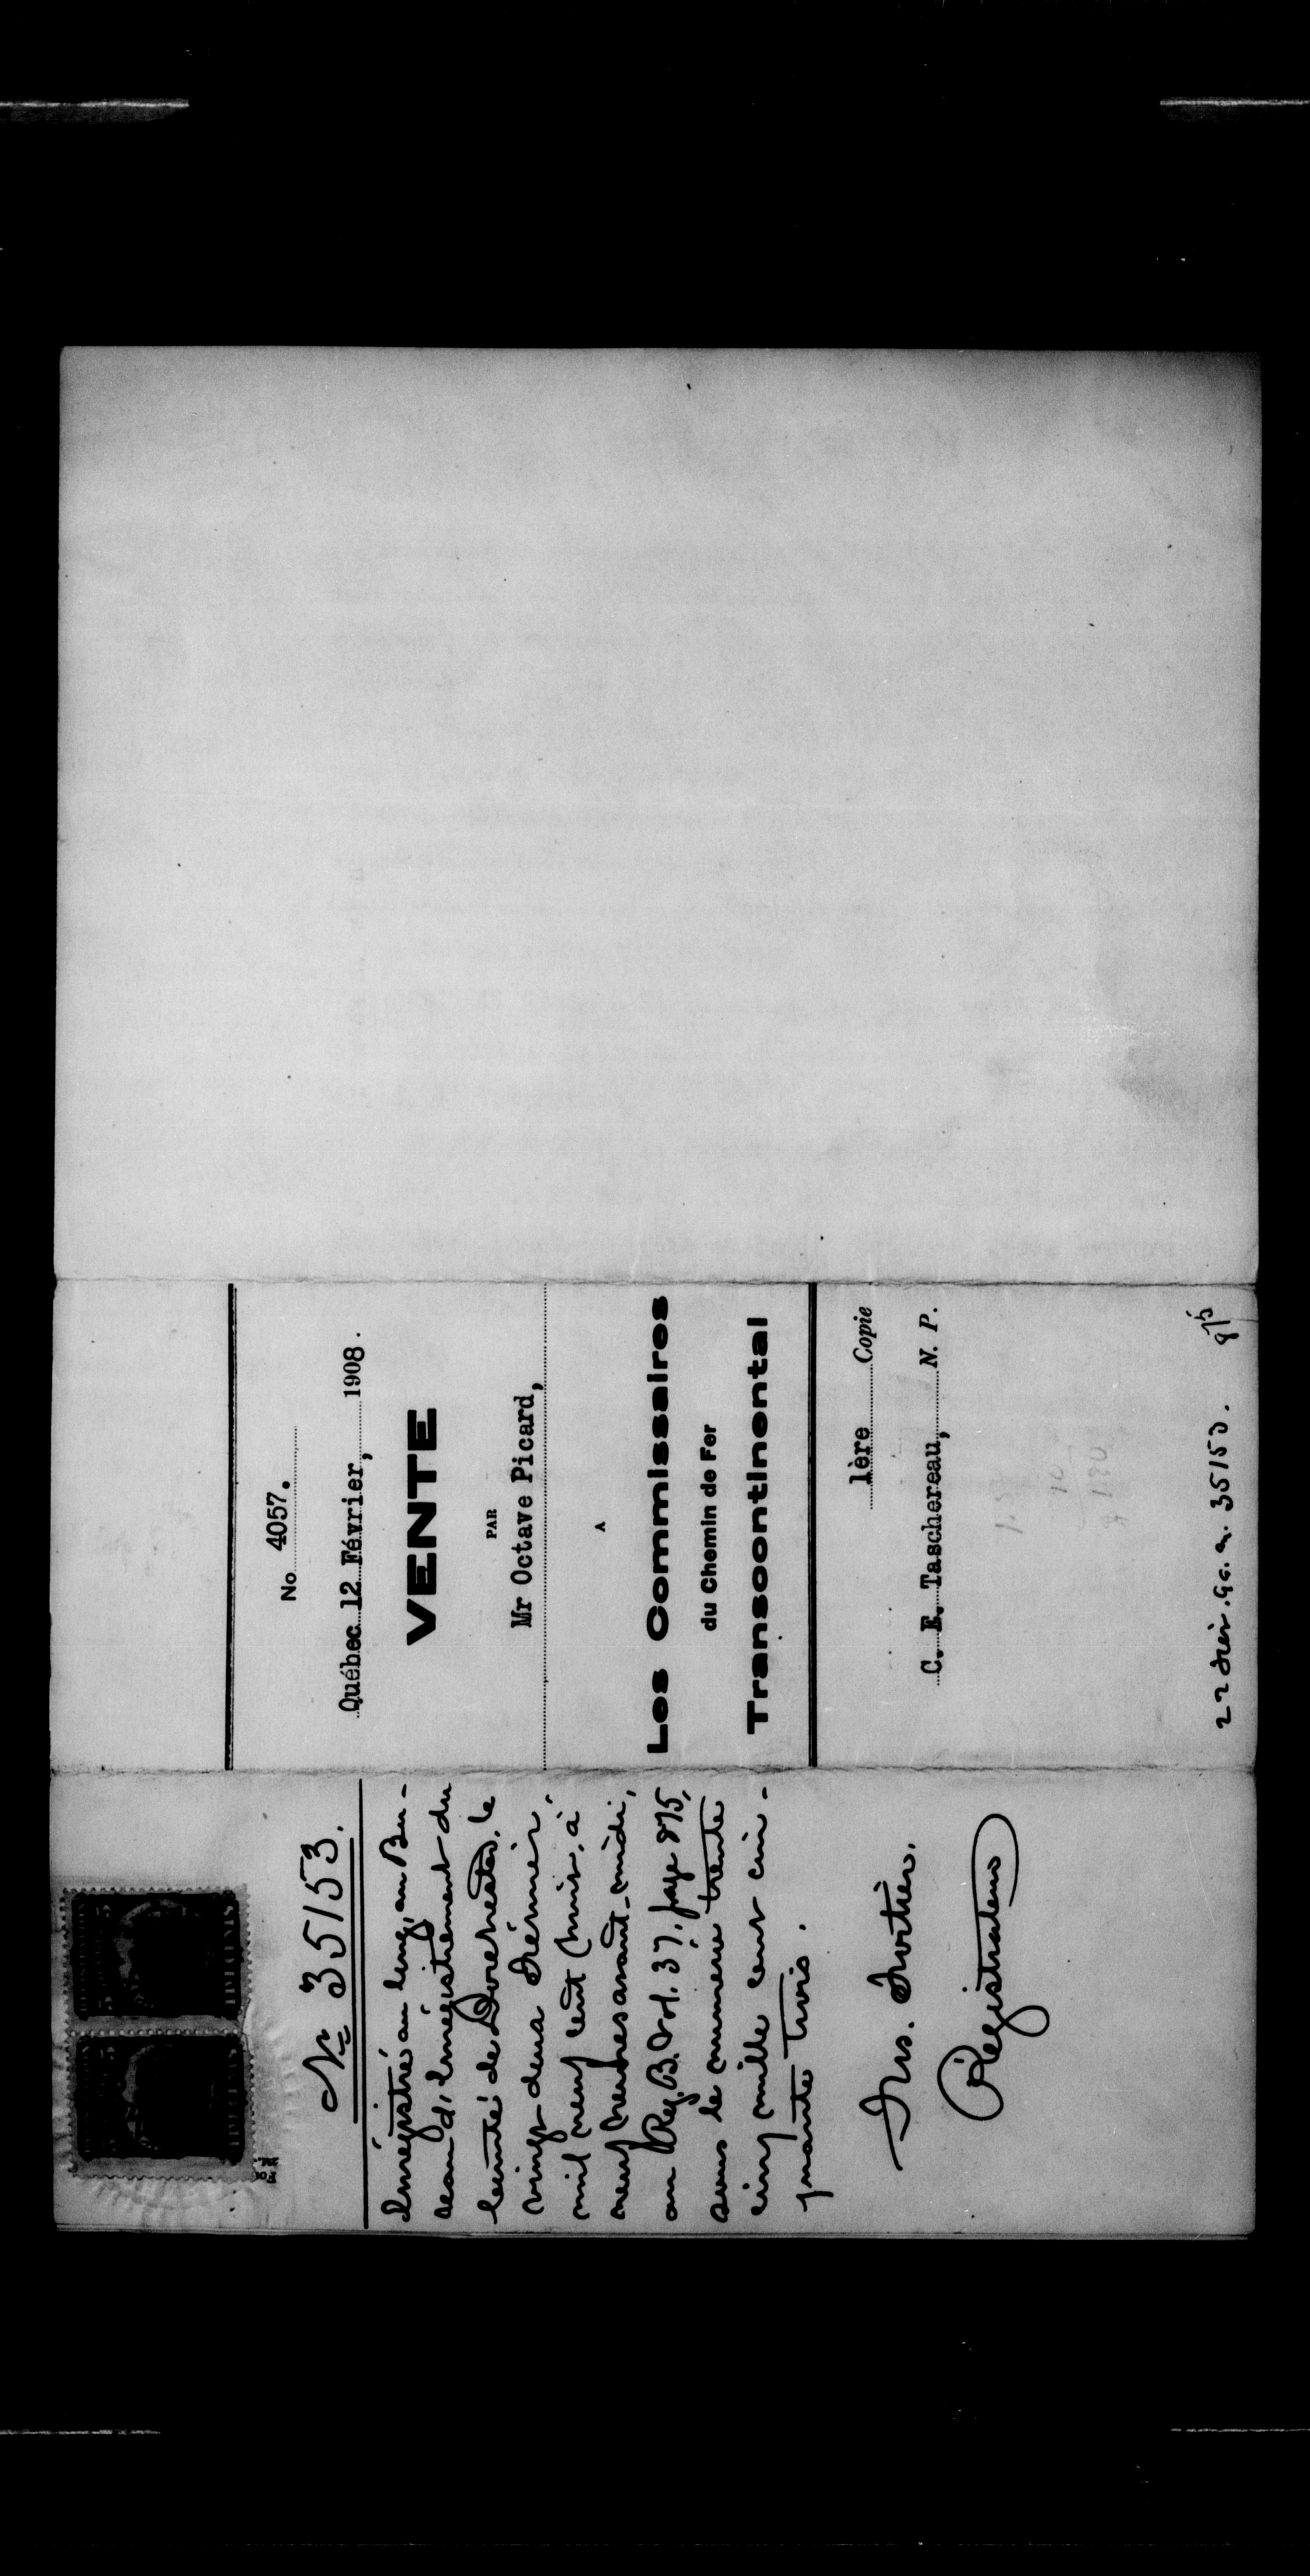 No 4057.
Québec 12 Février, 1908.
VENTE
PAR
Mr Octave Picard,
A
Les Commissaires
du Chemin de Fer
Transcontinental
1ère Copie
C. E. Taschereau, N. P.
22 9 a.m. 35153.
No 35153.
Enregistré au long, au Bu-
reau d'Enregistrement du
Comté de Dorchester, le
vingt deux Février
mil neuf cent huit, à
neuf heures avant-midi,
au Reg. B. Vol. 37, page 875,
sous le numero trente
cinq mille cent cin-
quante trois.
Frs. Fortier.
Registrateur